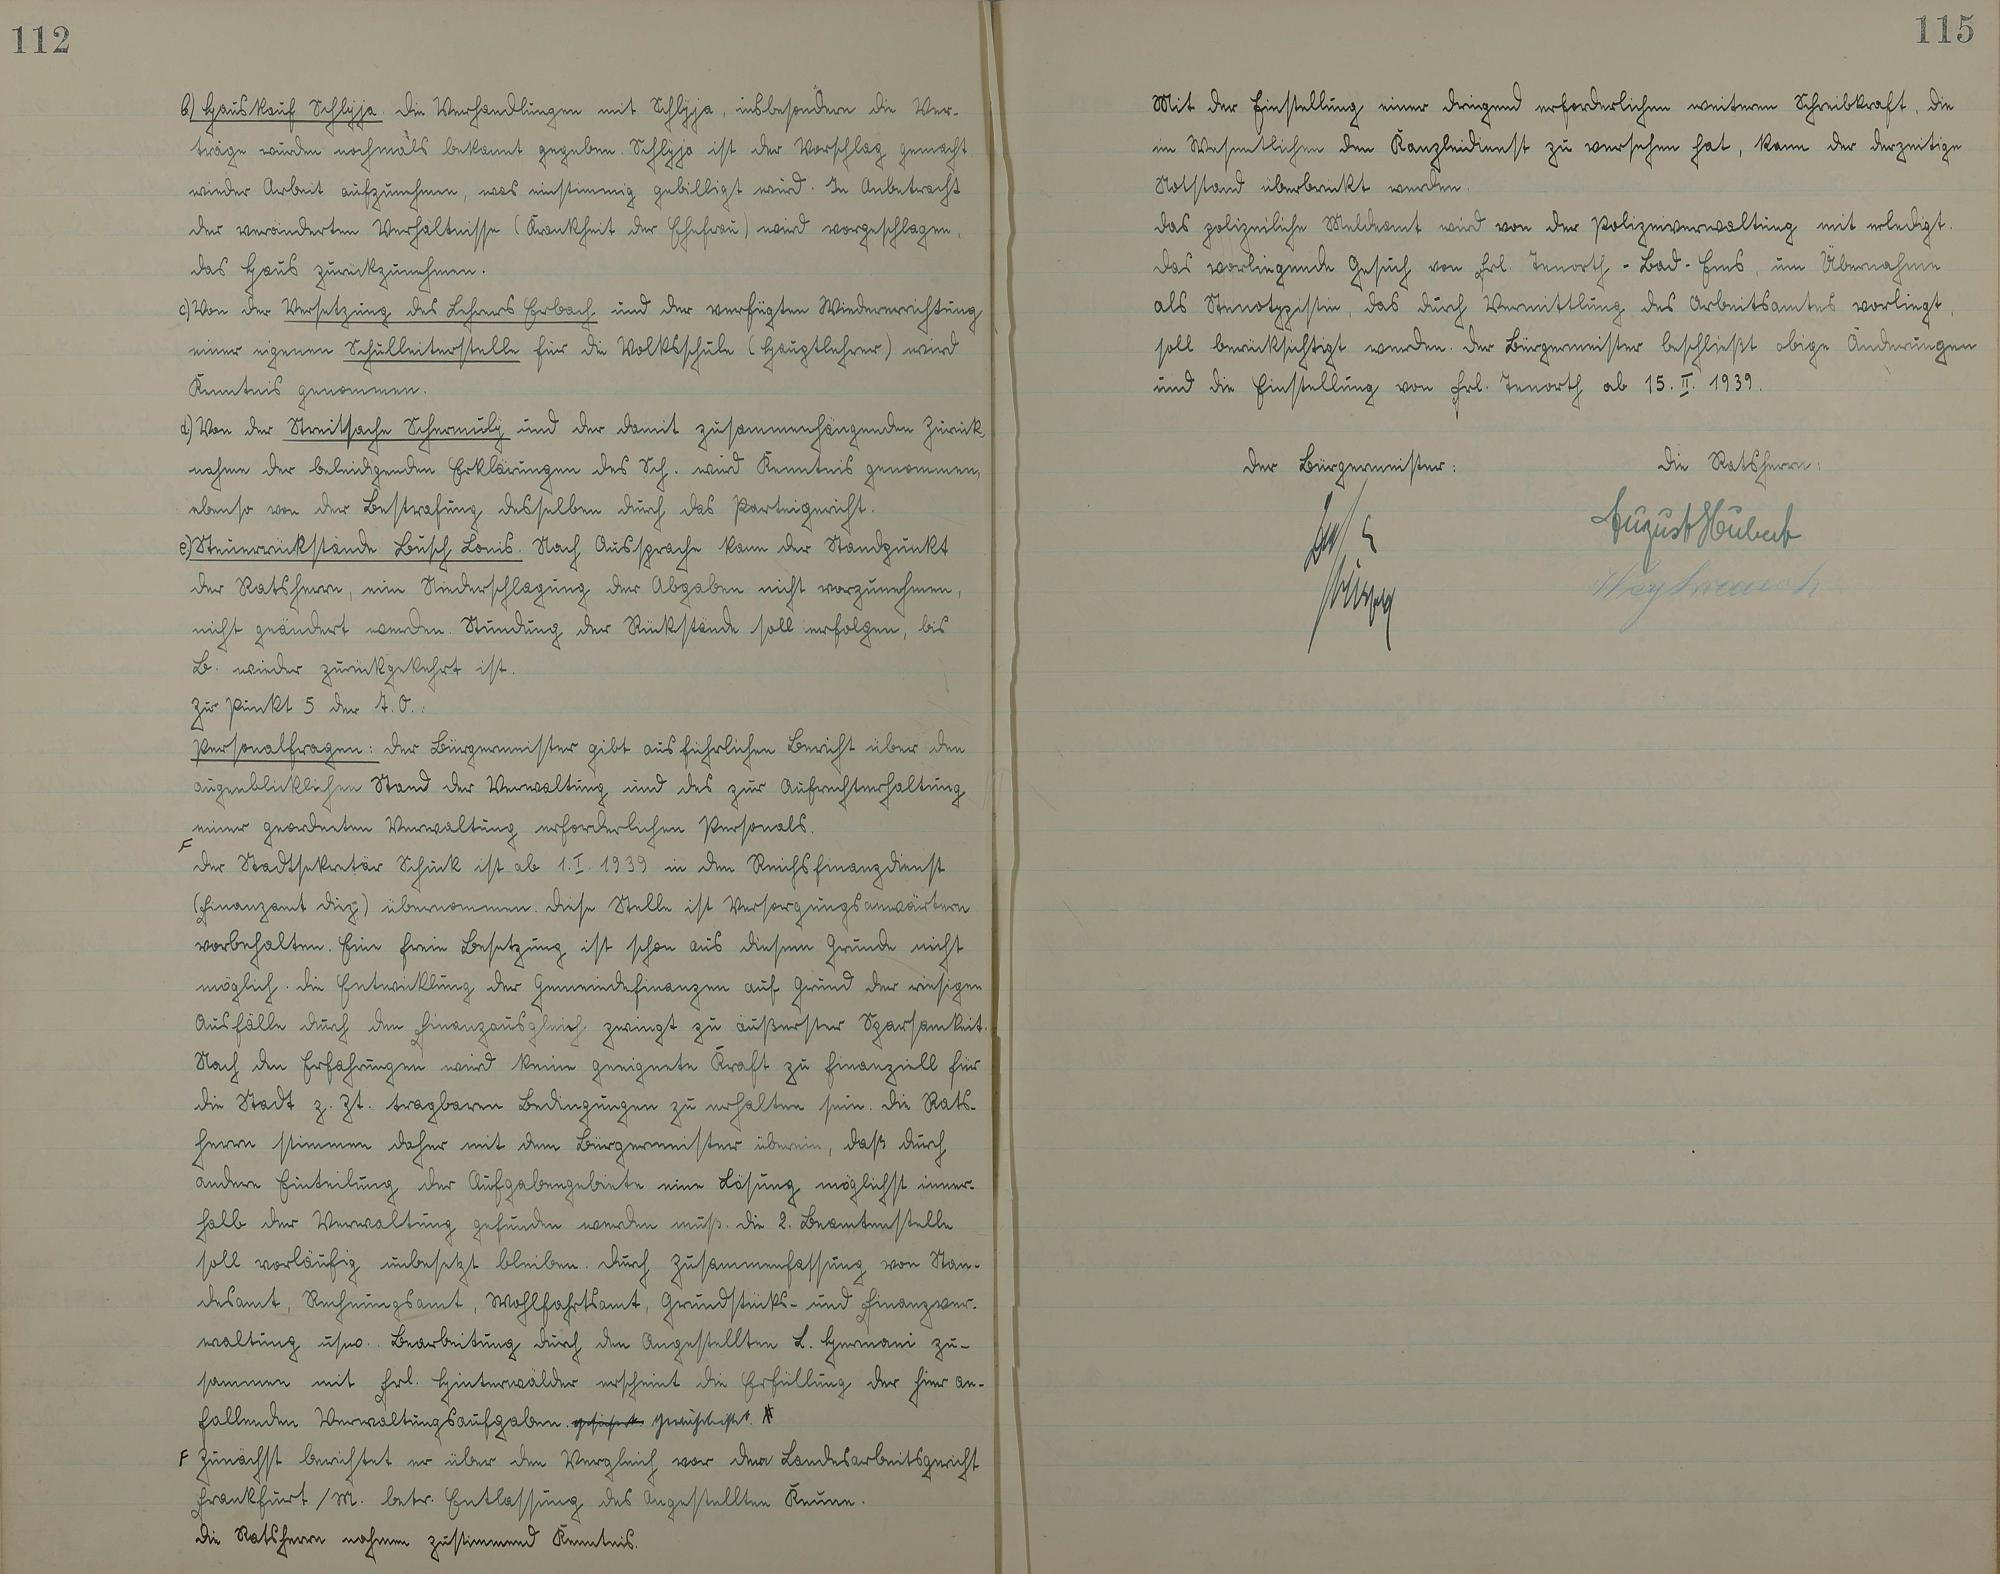 112
b) Hauskauf Schlyja. Die Verhandlungen mit Schlyja, insbesondere die Ver-
träge wurden nochmals bekannt gegeben. Schlyja ist der Vorschlag gemacht
wieder Arbeit aufzunehmen, was einstimmig gebilligt wird. In Anbetracht
der veränderten Verhältnisse (Krankheit der Ehefrau) wird vorgeschlagen,
das Haus zurückzunehmen.
c) Von der Versetzung des Lehrers Erbach und der verfügten Wiedererrichtung
einer eigenen Schulleiterstelle für die Volksschule (Hauptlehrer) wird
Kenntnis genommen.
d) Von der Streitsache Schermuly und der damit zusammenhängenden Zurück-
nahme der beleidigenden Erklärungen des Sch. wird Kenntnis genommen,
ebenso von der Bestrafung desselben durch das Parteigericht.
e) Steuerrückstände Busch Louis. Nach Aussprache kann der Standpunkt
der Ratsherrn, eine Niederschlagung der Abgaben nicht vorzunehmen,
nicht geändert werden. Stundung der Rückstände soll erfolgen, bis
B. wieder zurückgekehrt ist.
Zu Punkt 5 der T.O.:
Personalfragen: Der Bürgermeister gibt ausführlichen Bericht über den
augenblicklichen Stand der Verwaltung und des zur Aufrechterhaltung
einer geordneten Verwaltung erforderlichen Personals.
F
Der Stadtsekretär Schuck ist ab 1.I. 1939 in den Reichsfinanzdienst
(Finanzamt Diez) übernommen. Diese Stelle ist Versorgungsanwärtern
vorbehalten. Eine freie Besetzung ist schon aus diesem Grunde nicht
möglich. Die Entwicklung der Gemeindefinanzen auf Grund der riesigen
Ausfälle durch den Finanzausgleich zwingt zu äußerster Sparsamkeit.
Nach den Erfahrungen wird keine geeignete Kraft zu finanziell für
die Stadt z. Zt. tragbaren Bedingungen zu erhalten sein. Die Rats-
herrn stimmen daher mit dem Bürgermeister überein, daß durch
andere Einteilung der Aufgabengebiete eine Lösung möglichst inner-
halb der Verwaltung gefunden werden muß. Die 2. Beamtenstelle
soll vorläufig unbesetzt bleiben. Durch Zusammenfassung von Stan-
desamt, Rechnungsamt, Wohlfahrtsamt, Grundstücks- und Finanzver-
waltung usw.. Bearbeitung durch den Angestellten L. Hermani zu-
sammen mit Frl. Hinterwälder erscheint die Erfüllung der hier an-
fallenden Verwaltungsaufgaben gesichert gewährleistet.
F Zunächst berichtet er über den Vergleich vor dem Landesarbeitsgericht
Frankfurt /M. betr. Entlassung des Angestellten Keune.
Die Ratsherrn nahmen zustimmend Kenntnis.
115
Mit der Einstellung einer dringend erforderlichen weiteren Schreibkraft, die
im Wesentlichen den Kanzleidienst zu versehen hat, kann der derzeitige
Notstand überbrückt werden.
Das polizeiliche Meldeamt wird von der Polizeiverwaltung mit erledigt.
Das vorliegende Gesuch von Frl. Tenorth - Bad-Ems, um Übernahme
als Stenotypistin, das durch Vermittlung des Arbeitsamtes vorliegt,
soll berücksichtigt werden. Der Bürgermeister beschließt obige Änderungen
und die Einstellung von Frl. Tenorth ab 15. II. 1939.
Der Bürgermeister: Die Ratsherrn:
August Hubert